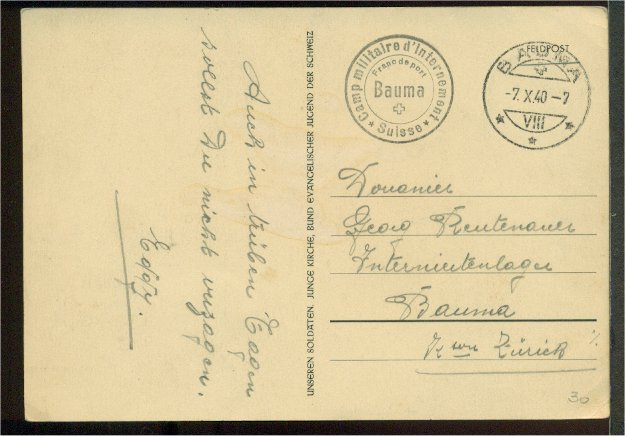 Auch in trüben Tagen
sollst Du nicht verzagen.
Eddy.
UNSEREN SOLDATEN. JUNGE KIRCHE, BUND EVANGELISCHER JUGEND DER SCHWEIZ
Camp militaire d'internement
Franc de port
Bauma
Suisse
FELDPOST
BAUMA
-7.X.40-7
VIII
Douanier
Georg Reutenauer
Interniertenlager
Bauma
Kton Zürich
30